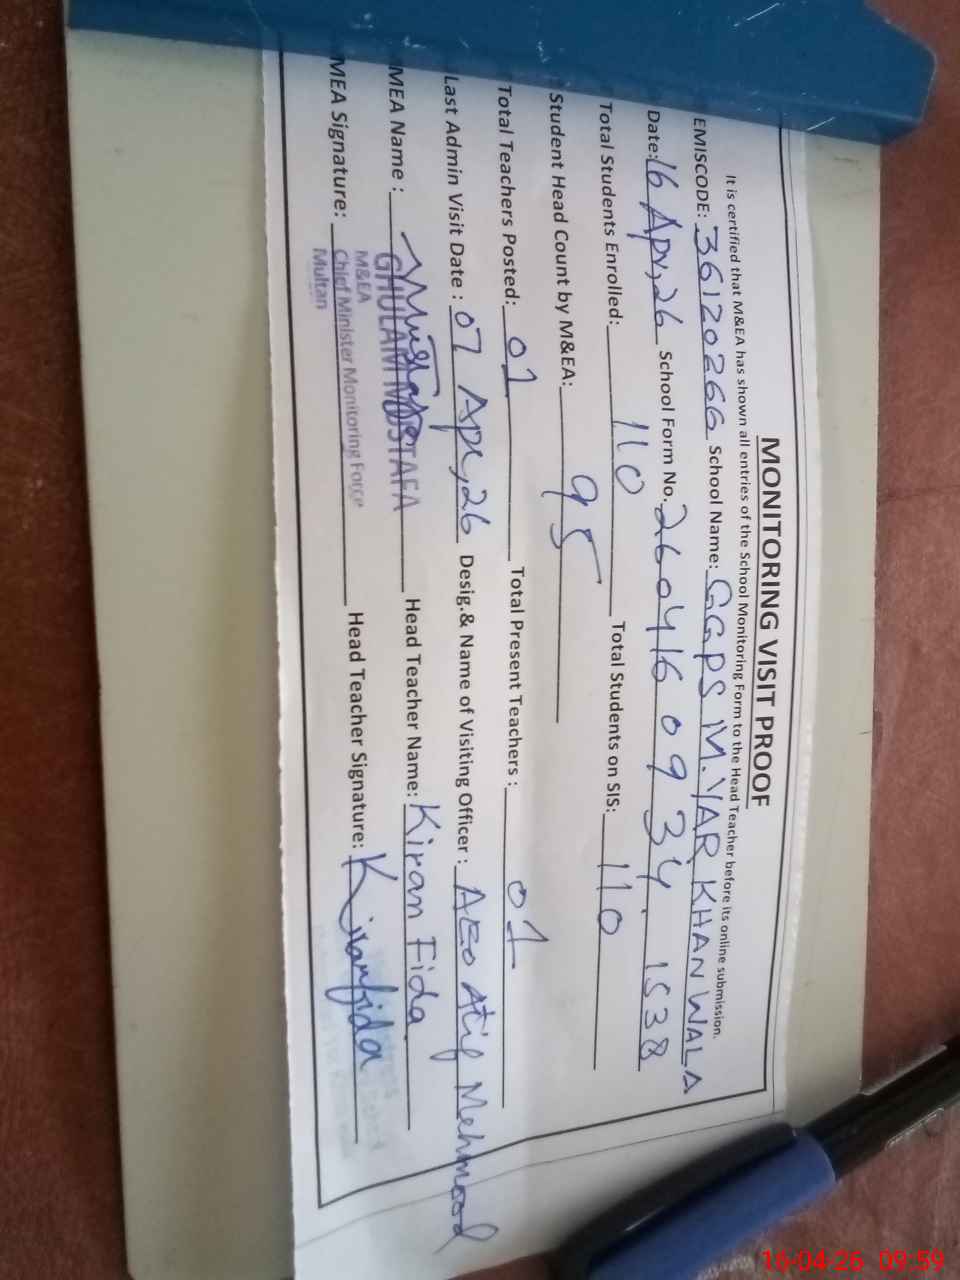 MONITORING VISIT PROOF
It is certified that M&EA has shown all entries of the School Monitoring Form to the Head Teacher before its online submission.
EMISCODE: 36120266 School Name: GGPS M.YAR KHAN WALA
Date: 16 Apr, 26 School Form No. 260416 09 34 1538
Total Students Enrolled: 110 Total Students on SIS: 110
Student Head Count by M&EA: 95
Total Teachers Posted: 01 Total Present Teachers : 01
Last Admin Visit Date : 07 Apr, 26 Desig.& Name of Visiting Officer : AEO Atif Mehmood
MEA Name : GHULAM MUSTAFA Head Teacher Name: Kiran Fida
MEA Signature: Mustafa Head Teacher Signature: Kiranfida
M&EA
Chief Minister Monitoring Force
Multan
16-04-26 09:59